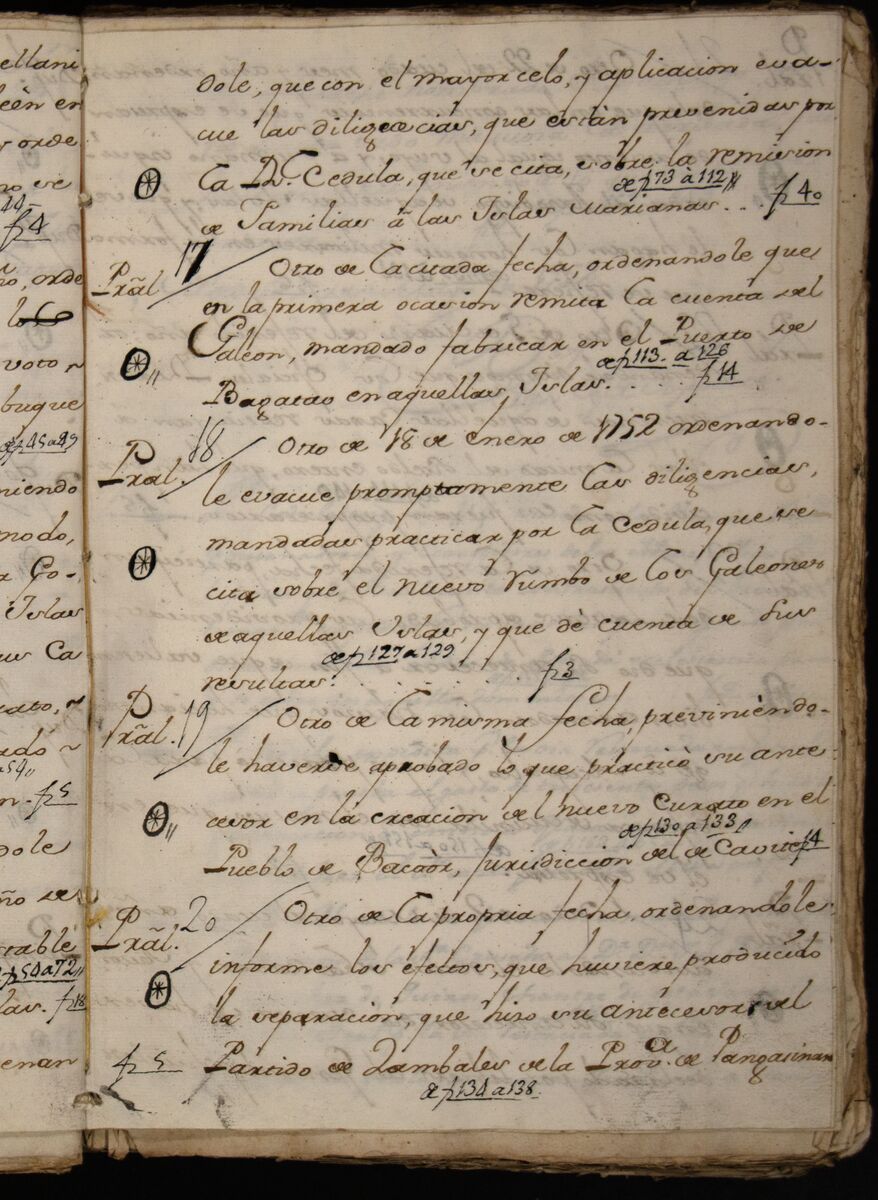 dole, que con el mayor celo, y aplicacion eva-
cue las diligecias, que están prevenidas por
la Rl. Cedula, que se cita, sobre la remision
de f 73 à 112
de Familias á las Islas Marianas. . . f 40
Prãl 17 Otro de la citada fecha, ordenandole que
en la primera ocasion remita la cuenta del
Galeon, mandado fabricar en el Puerto de
de f 113. a 126
Bagatao en aquellas Islas. . . . . f 14
Prãl. 18 Otro de 18 de enero de 1752 ordenando-
le evacue promptamente las diligencias,
mandadas practicar por la Cedula, que se
cita sobre el nuevo rumbo de los Galeones
de aquellas Islas, y que dè cuenta de sus
de f 127 a 129
resultas. . . . . . . f 3
Prãl. 19 Otro de la misma fecha, previniendo-
le haverse aprobado lo que practicò su ante-
cesor en la creacion del nuevo Curato en el
de f 130 a 133
Pueblo de Bacoòr, Jurisdiccion del de Cavite f 4
Prãl. 20 Otro de la propria fecha, ordenandole
informe los efectos, que huviere producido
la separacion, que hizo su antecesor, del
f 5 Partido de Zambales de la Prova. de Pangasinan
de f 134 a 138.
ellani
leèn en
orde
no se
44-
f 4
no, orde
lo
voto
buque
de f 45 a 49
niendo
modo,
Go-
Islas
us Ca
rato,
rdo
a 54
n. f 5
dole
ño de
stable
f 54 a 72
las. f 18
enan